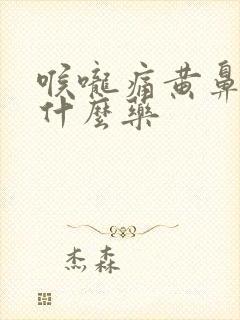 喉嚨痛黄鼻
什麼藥
杰森